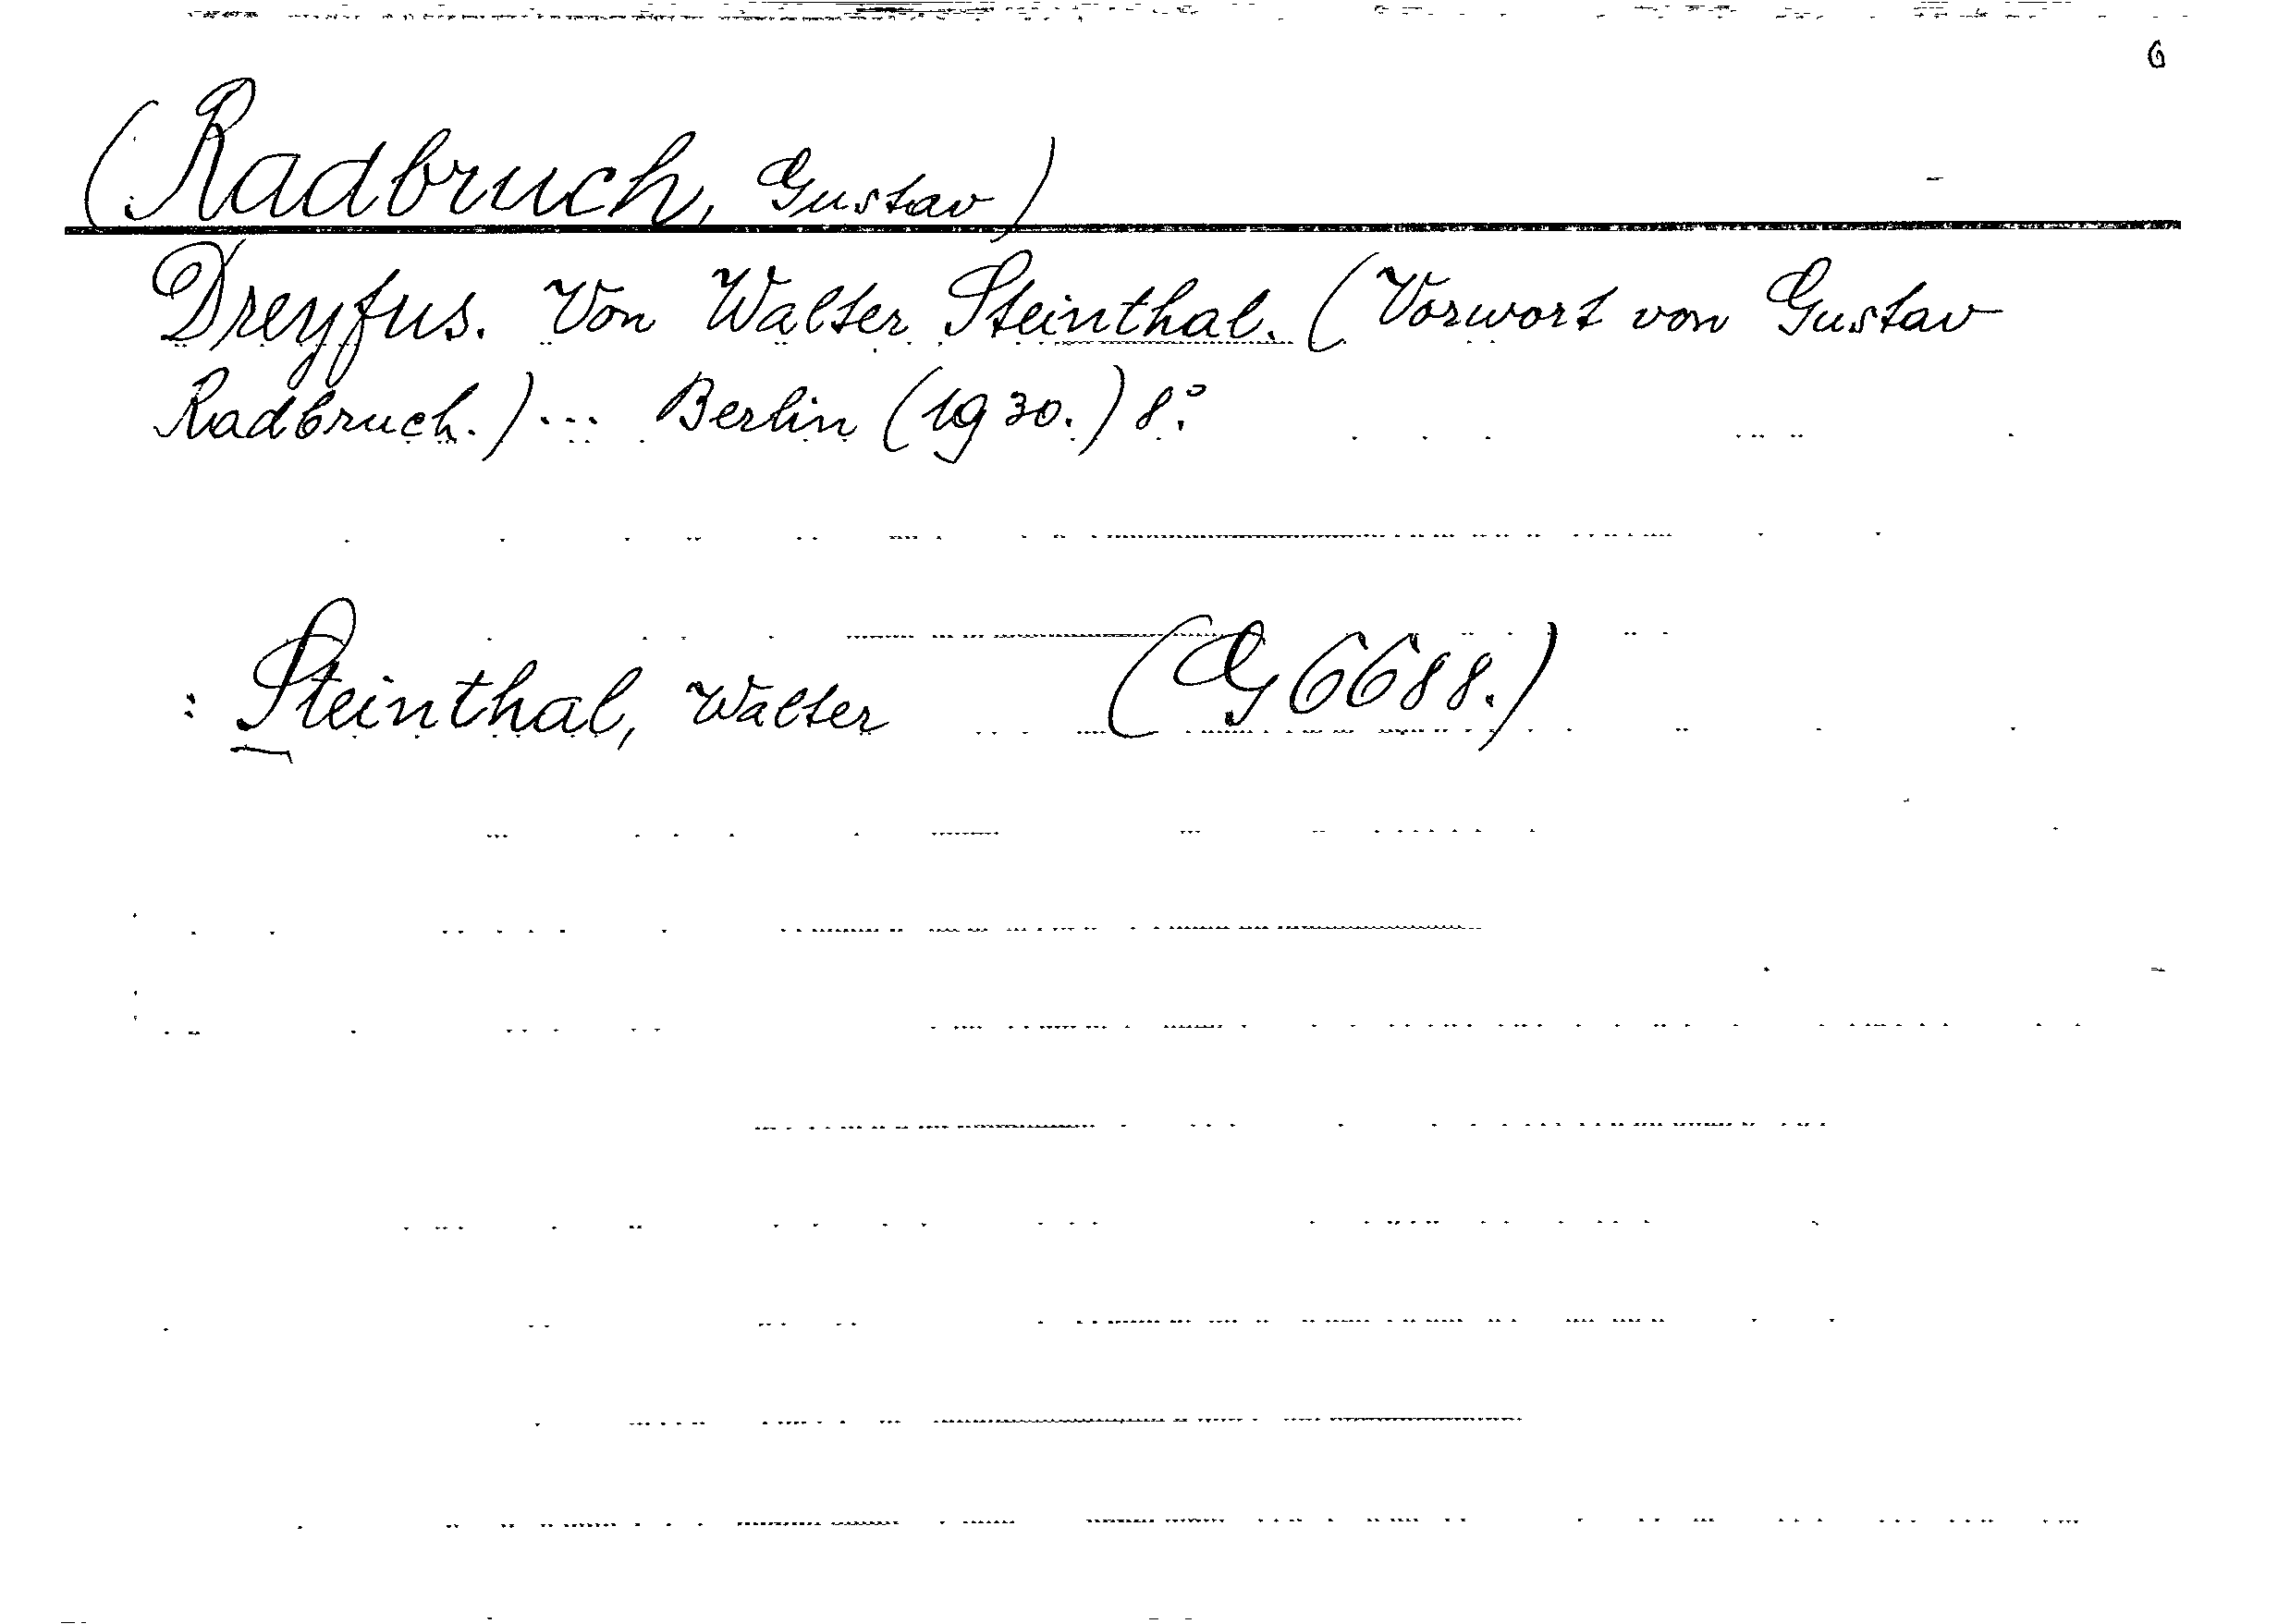 6
(Radbruch, Gustav)
Dreyfus. Von Walter Steinthal. (Vorwort von Gustav
Radbruch.) ... Berlin (1930.) 8°.
: Steinthal, Walter (G 6688.)